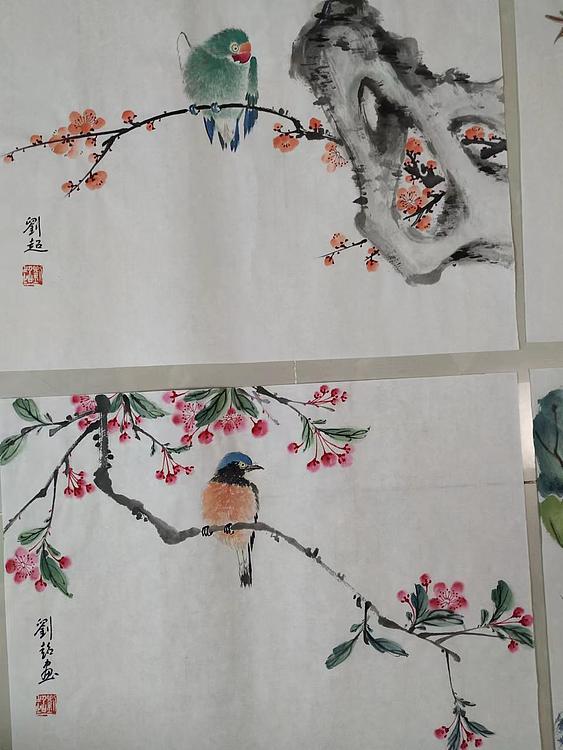 劉超
劉超畫